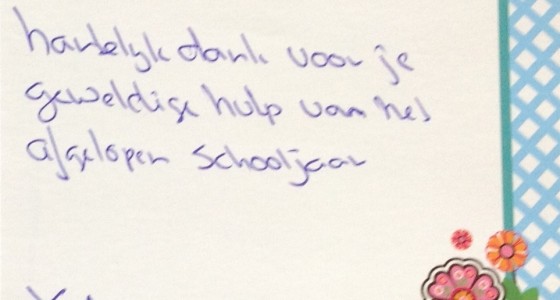 hartelijk dank voor je
geweldige hulp van het
afgelopen schooljaar